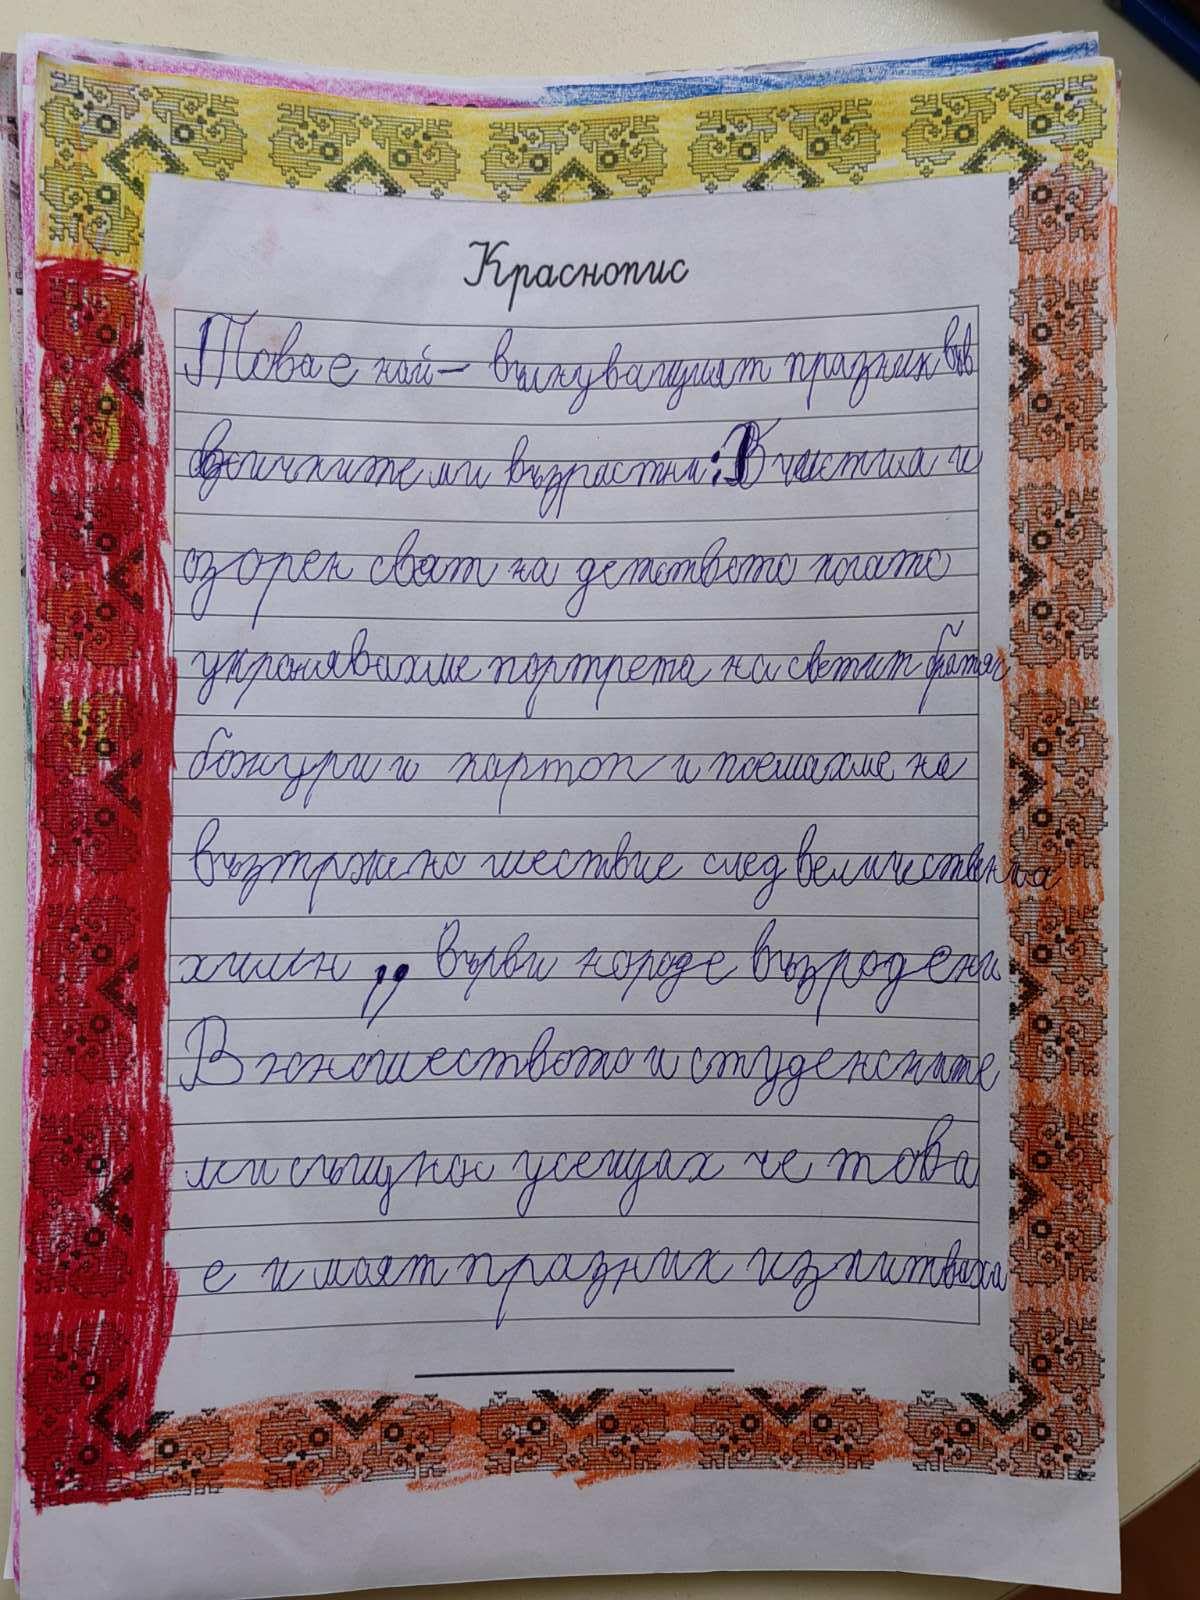 Краснопис
Това е най- вълнуващият празник във
всичките ми възрасти: В чистия и
озорен свят на детството когато
украсявахме портрета на светит братя с
божури и картоп и поемахме на
възтржено шествие след величествения
химн ,, върви народе възродени
В юношеството и студенските
ми същно усещах че това
е и моят празник изпитваха